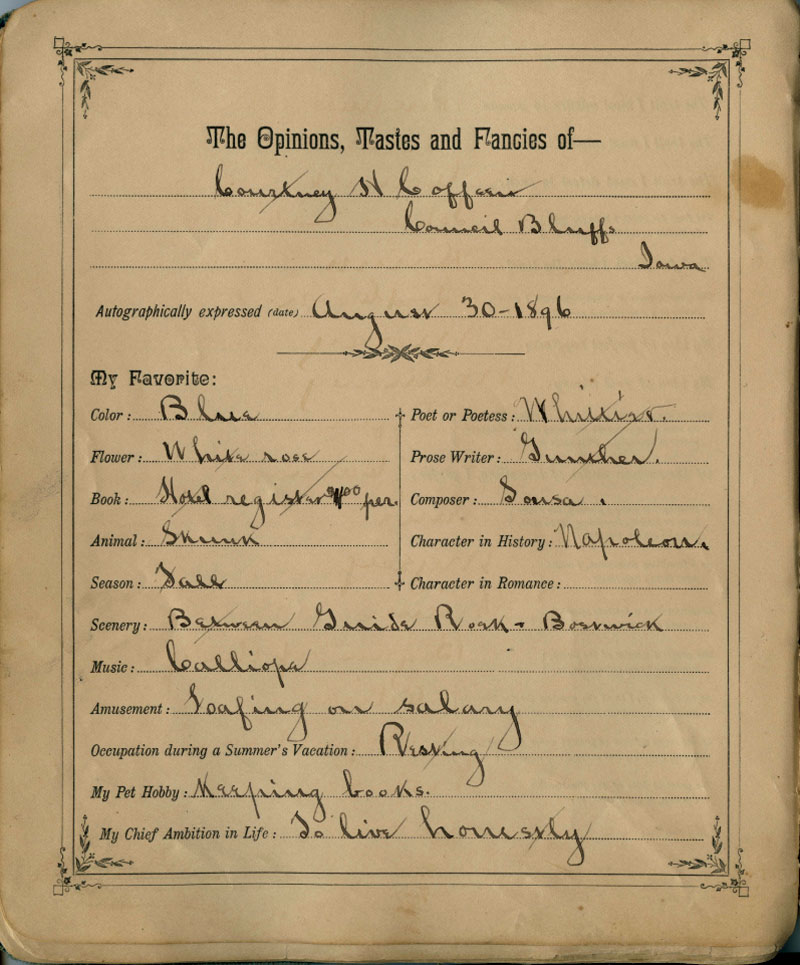 The Opinions, Tastes and Fancies of—
Courtney H Coffeen
Council Bluffs
Iowa
Autographically expressed (date) August 30-1896
My Favorite:
Color: Blue
Flower: White rose
Book: Hotel register per.
Animal: Skunk
Season: Fall
Poet or Poetess: Whittier.
Prose Writer: Gunther.
Composer: Sousa.
Character in History: Napoleon.
Character in Romance:
Scenery: Between Guide Rock + Bostwick
Music: Calliope
Amusement: Loafing on salary
Occupation during a Summer's Vacation: Resting
My Pet Hobby: Keeping books.
My Chief Ambition in Life: To live honestly